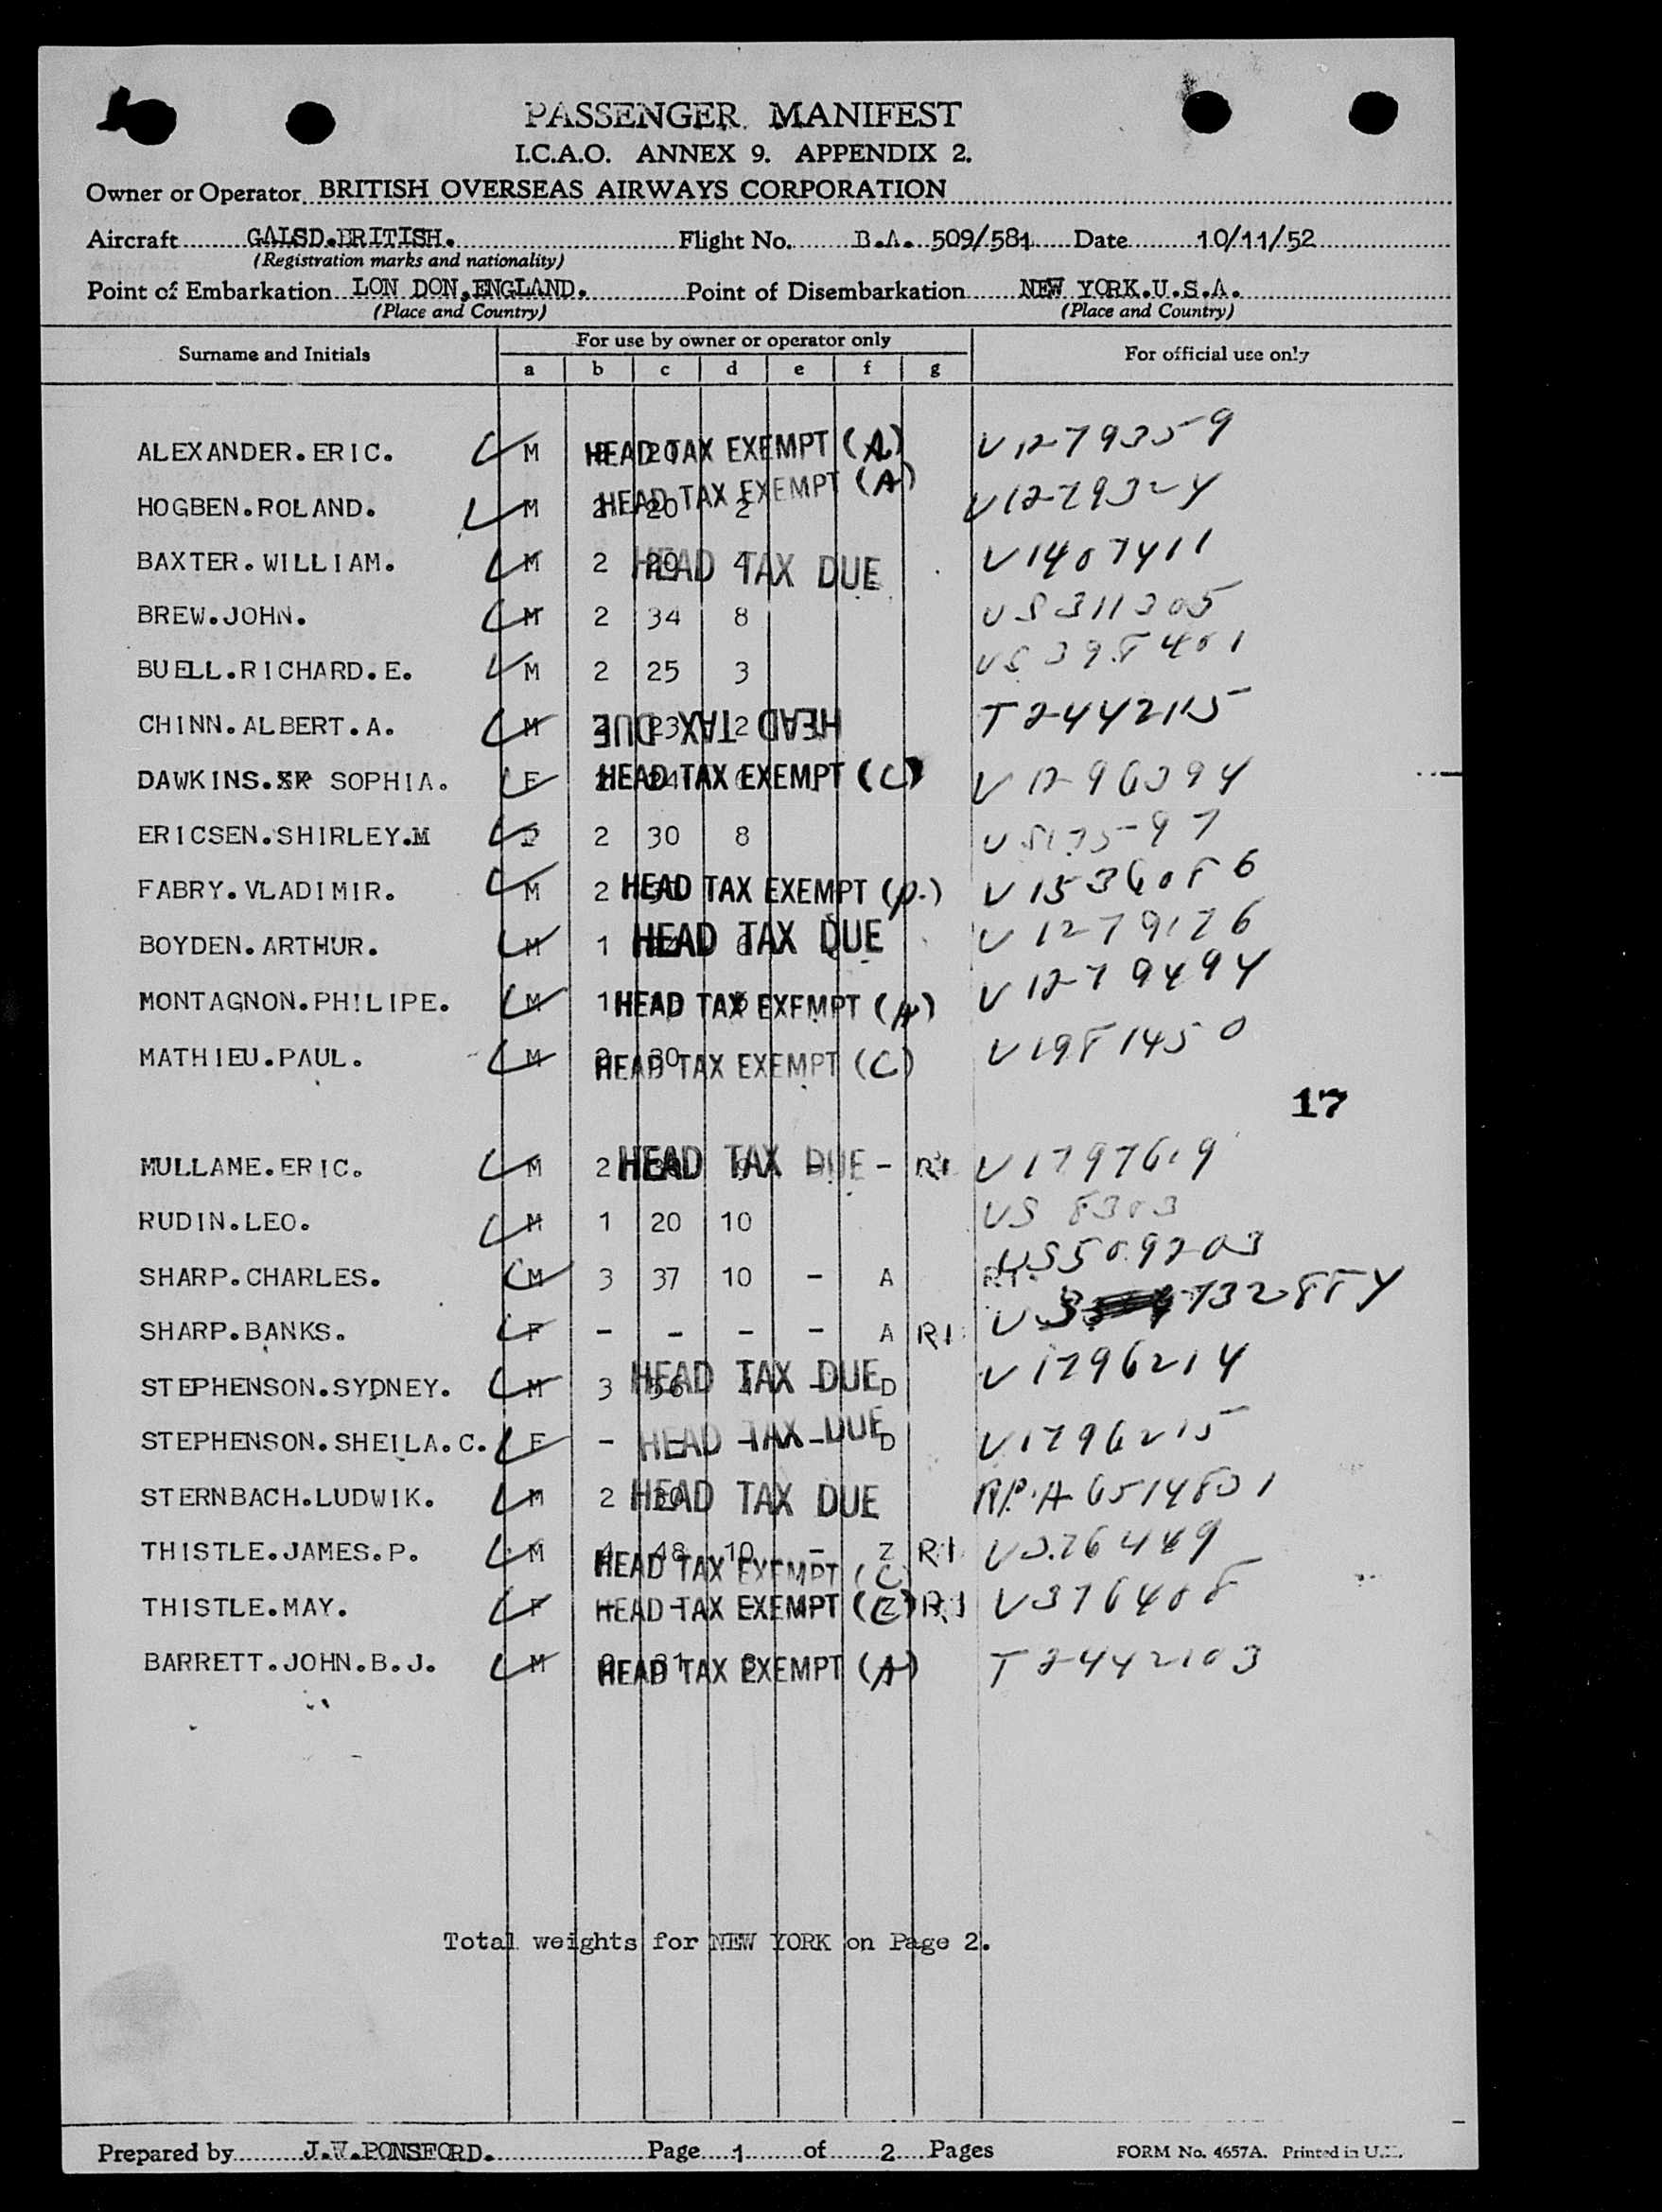 PASSENGER MANIFEST
I.C.A.O. ANNEX 9. APPENDIX 2.
Owner or Operator BRITISH OVERSEAS AIRWAYS CORPORATION
Aircraft GALSD.BRITISH. Flight No. B.A. 509/581 Date 10/11/52
(Registration marks and nationality)
Point of Embarkation LON DON,ENGLAND. Point of Disembarkation NEW YORK.U.S.A.
(Place and Country) (Place and Country)
Surname and Initials For use by owner or operator only For official use only
a b c d e f g
ALEXANDER.ERIC. M HEAD TAX EXEMPT (A) V1279359
HOGBEN.ROLAND. M 2 20 2 HEAD TAX EXEMPT (A) V1279324
BAXTER.WILLIAM. M 2 20 4 HEAD TAX DUE V1407411
BREW.JOHN. M 2 34 8 US311305
BUELL.RICHARD.E. M 2 25 3 US398401
CHINN.ALBERT.A. M 23 2 HEAD TAX DUE T2442115
DAWKINS. SOPHIA. F HEAD TAX EXEMPT (C) V1296394
ERICSEN.SHIRLEY.M 2 30 8
FABRY.VLADIMIR. M 2 HEAD TAX EXEMPT V1536086
BOYDEN.ARTHUR. M 1 HEAD TAX DUE V1279176
MONTAGNON.PHILIPE. M 1 HEAD TAX EXEMPT (A) V1279494
MATHIEU.PAUL. M 30 HEAD TAX EXEMPT (C) V1981450
17
MULLANE.ERIC. M 2 HEAD TAX DUE - RI V1797619
RUDIN.LEO. M 1 20 10 US 8303
SHARP.CHARLES. M 3 37 10 - A RI US509203
SHARP.BANKS. F - - - - A RI
STEPHENSON.SYDNEY. M 3 56 HEAD TAX DUE D V1796214
STEPHENSON.SHEILA.C. F - HEAD TAX DUE D V1796215
STERNBACH.LUDWIK. M 2 HEAD TAX DUE
THISTLE.JAMES.P. M 4 48 10 - Z RI HEAD TAX EXEMPT (C
THISTLE.MAY. F HEAD TAX EXEMPT (C) RI V376408
BARRETT.JOHN.B.J. M HEAD TAX EXEMPT (A) T2442103
Total weights for NEW YORK on Page 2.
Prepared by J.W.PONSFORD. Page 1 of 2 Pages FORM No. 4657A. Printed in